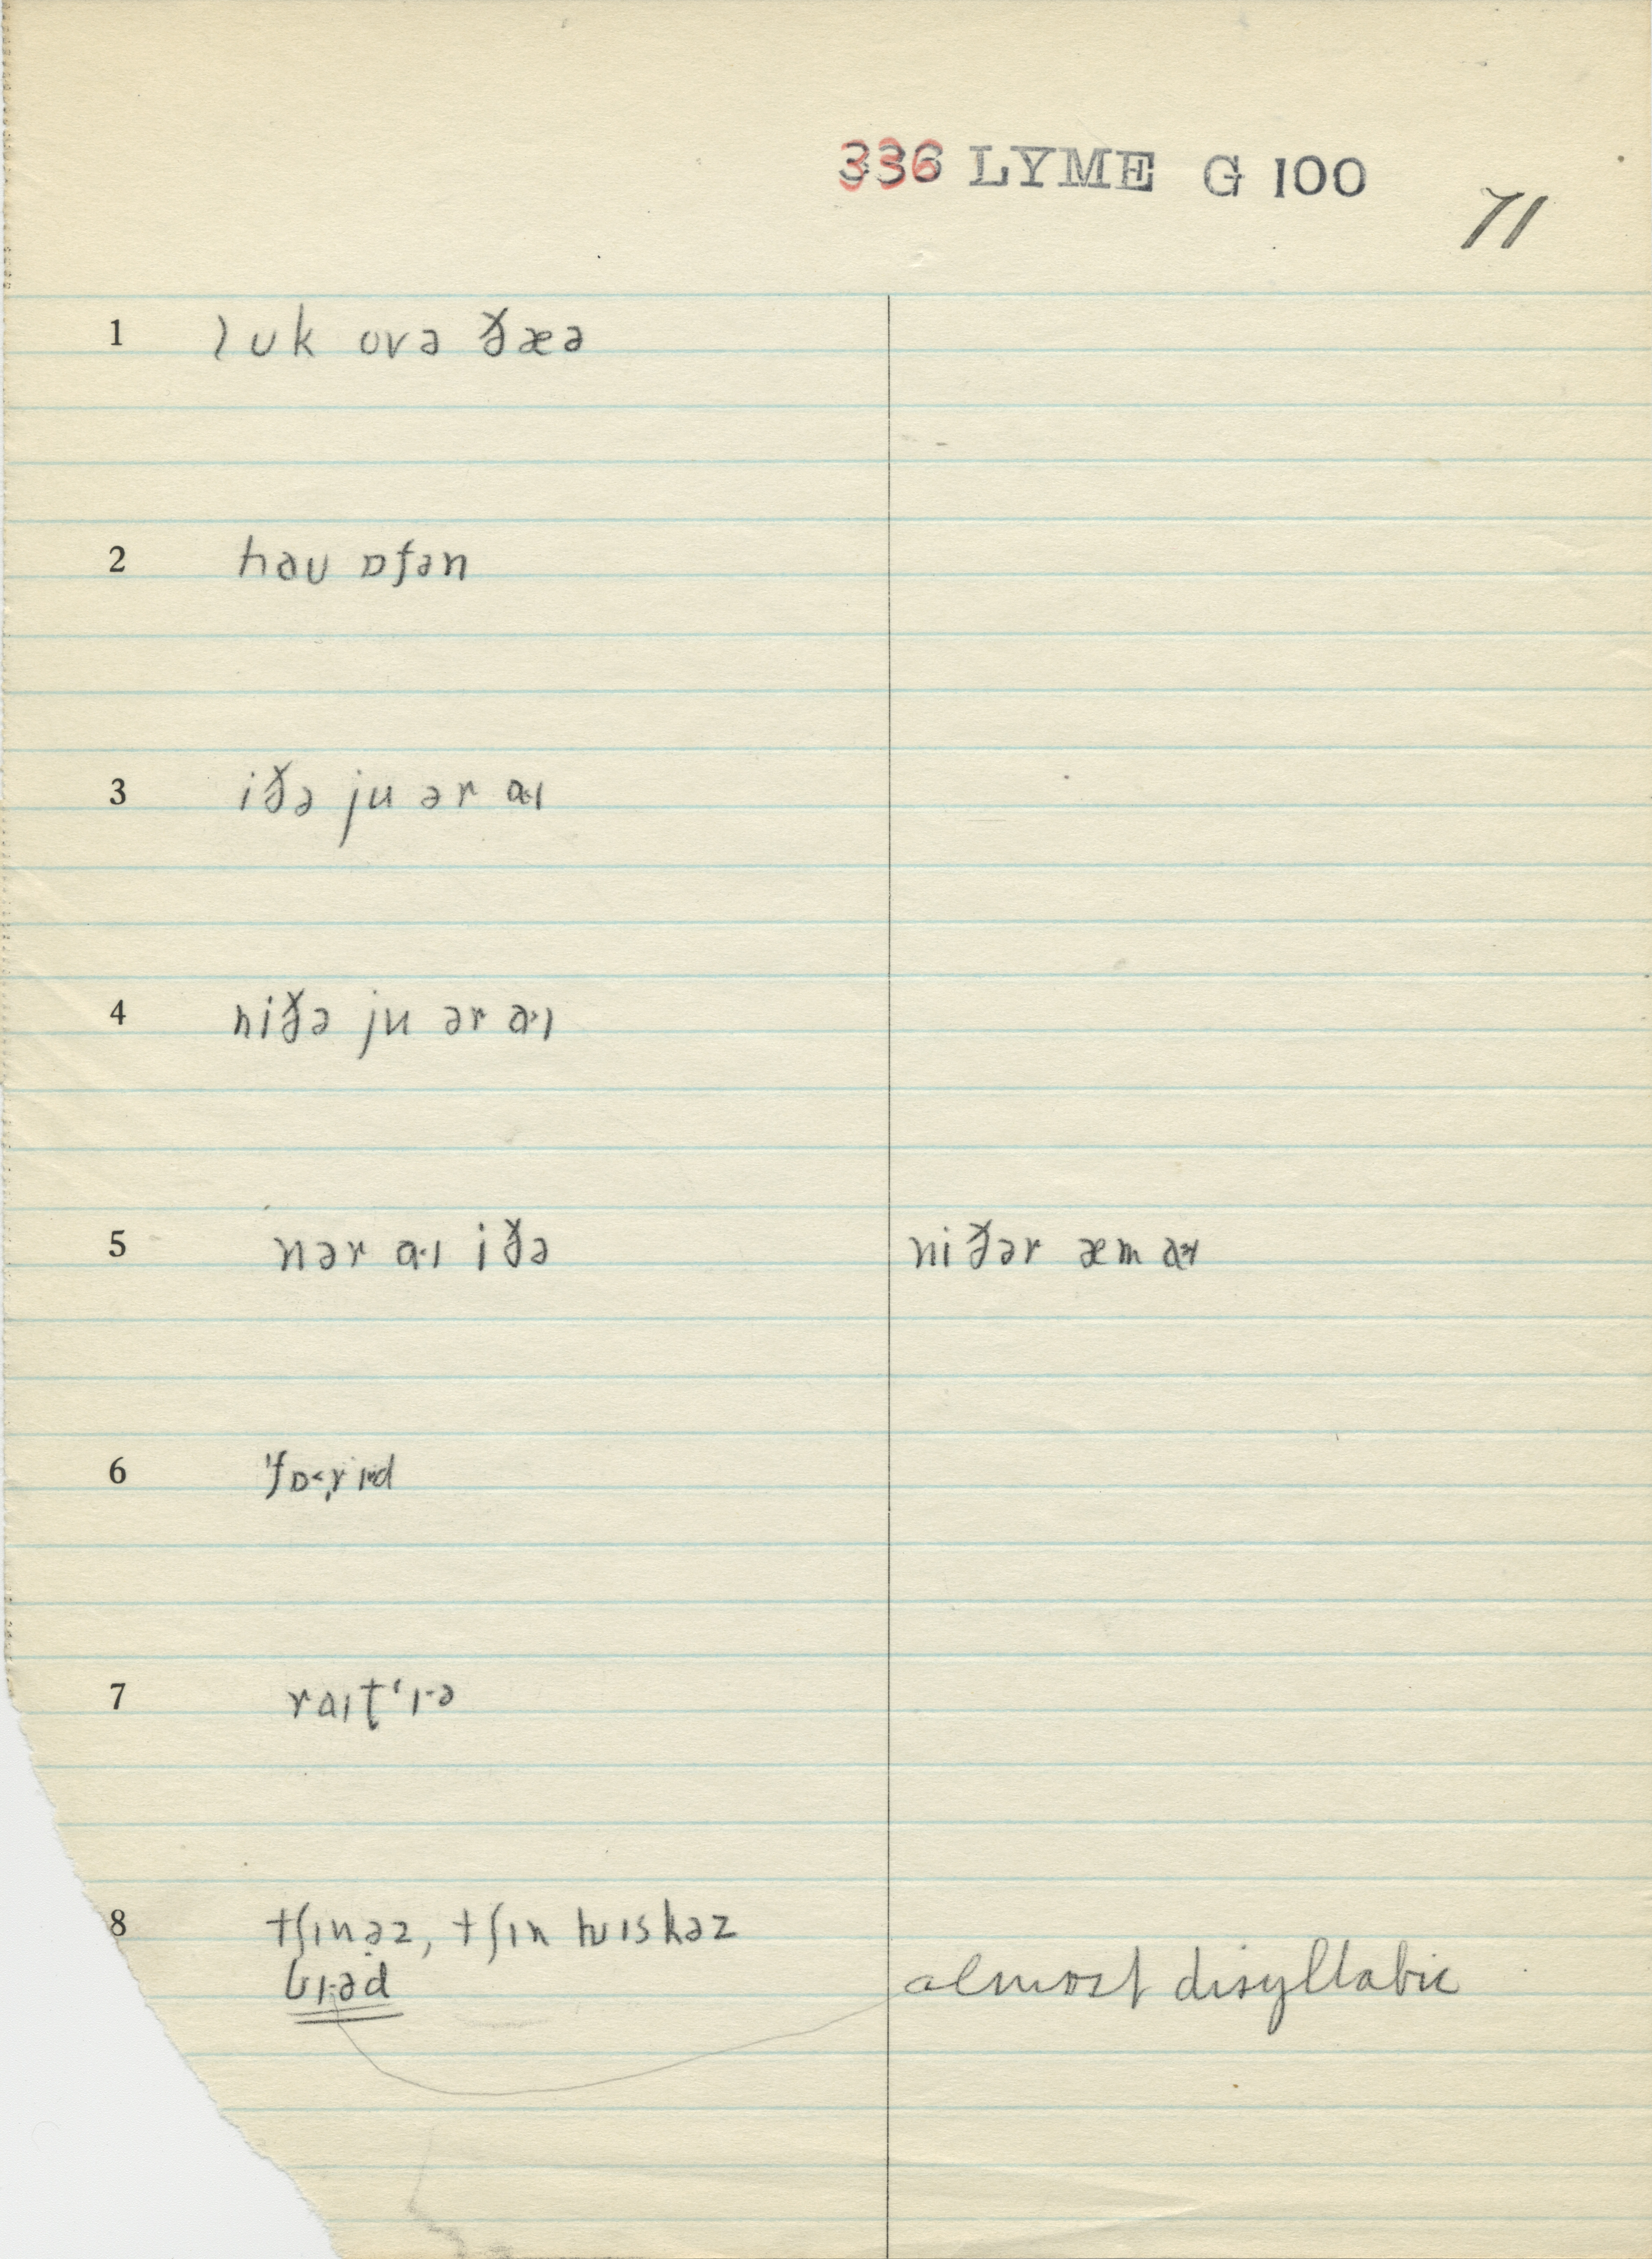 336 LYME G 100
71
1 lʊk ovə ðæə
2 haʊ ɒfən
3 iðə ju ər a·ɪ
4 niðə ju ər a·ɪ
5 nər a·ɪ iðə niðər æm a·ɪ
6 ˈfɒ˂rɪd
7 raɪt̬ʻɪ·ə
8 tʃɪnəz, tʃɪn hwɪskəz
bɪ·əd almost disyllabic